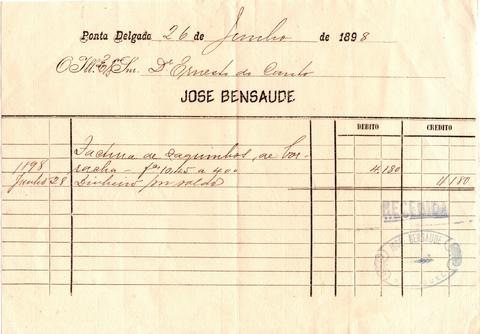 Ponta Delgada 26 de Junho de 1898
O Illmo. Exmo. Snr. Dr Ernesto do Canto
JOSE BENSAUDE
DEBITO CREDITO
Factura de saquinhos de bor-
1198 racha - 4,180
Junho 28 Dinheiro p/ saldo 4,180
RECEBIDA
JOSÉ BENSAUDE